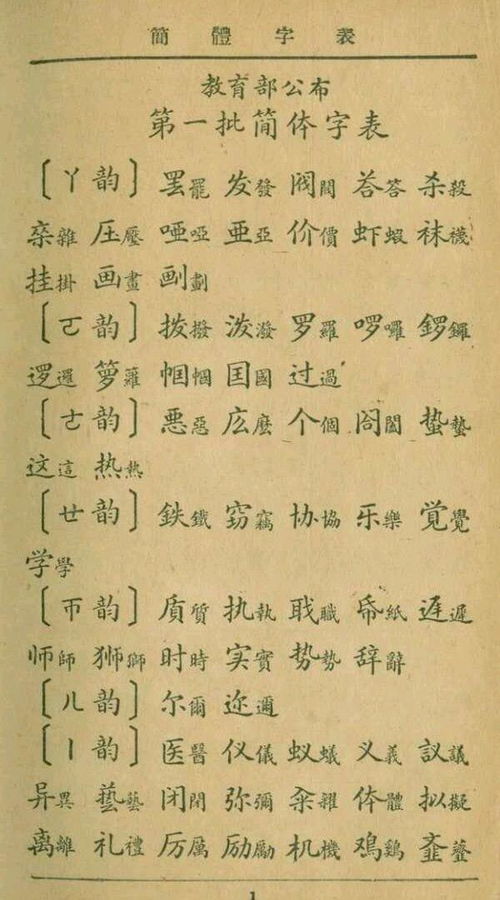 簡體字表
教育部公布
第一批简体字表
〔ㄚ韵〕罢罷 发發 阀閥 荅答 杀殺
杂雜 压壓 哑啞 亚亞 价價 虾蝦 袜襪
挂掛 画畫 劃
〔ㄛ韵〕拨撥 泼潑 罗羅 啰囉 鑼
逻邏 箩籮 帼幗 国國 过過
〔ㄜ韵〕恶惡 庅麼 个個 阁閣 蛰蟄
这這 热熱
〔ㄝ韵〕鉄鐵 窃竊 协協 乐樂 覚覺
学學
〔ㄭ韵〕质質 执執 职職 帋紙 迟遲
师師 狮獅 时時 实實 势勢 辞辭
〔ㄦ韵〕尔爾 迩邇
〔ㄧ韵〕医醫 仪儀 蚁蟻 义義 議
异異 藝 闭閉 弥彌 籴糴 体體 拟擬
离離 礼禮 厉厲 励勵 机機 鸡鷄 齑齏
1